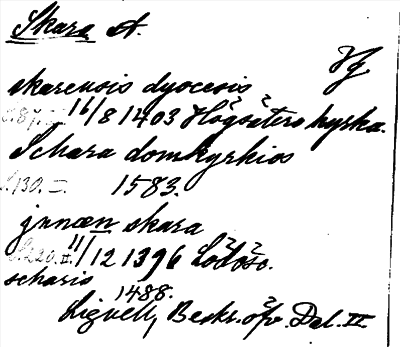 Skara st.
Vg
skarensis dyocesis
16/8 1403 Högsäters kyrka.
Schara domkyrkios
S. 130. I. 1583.
jnnæn skara
S. 220. II. 11/12 1396 Lödöse.
scharis
1488.
Ligvell, Beskr. öfv. Dal. II.